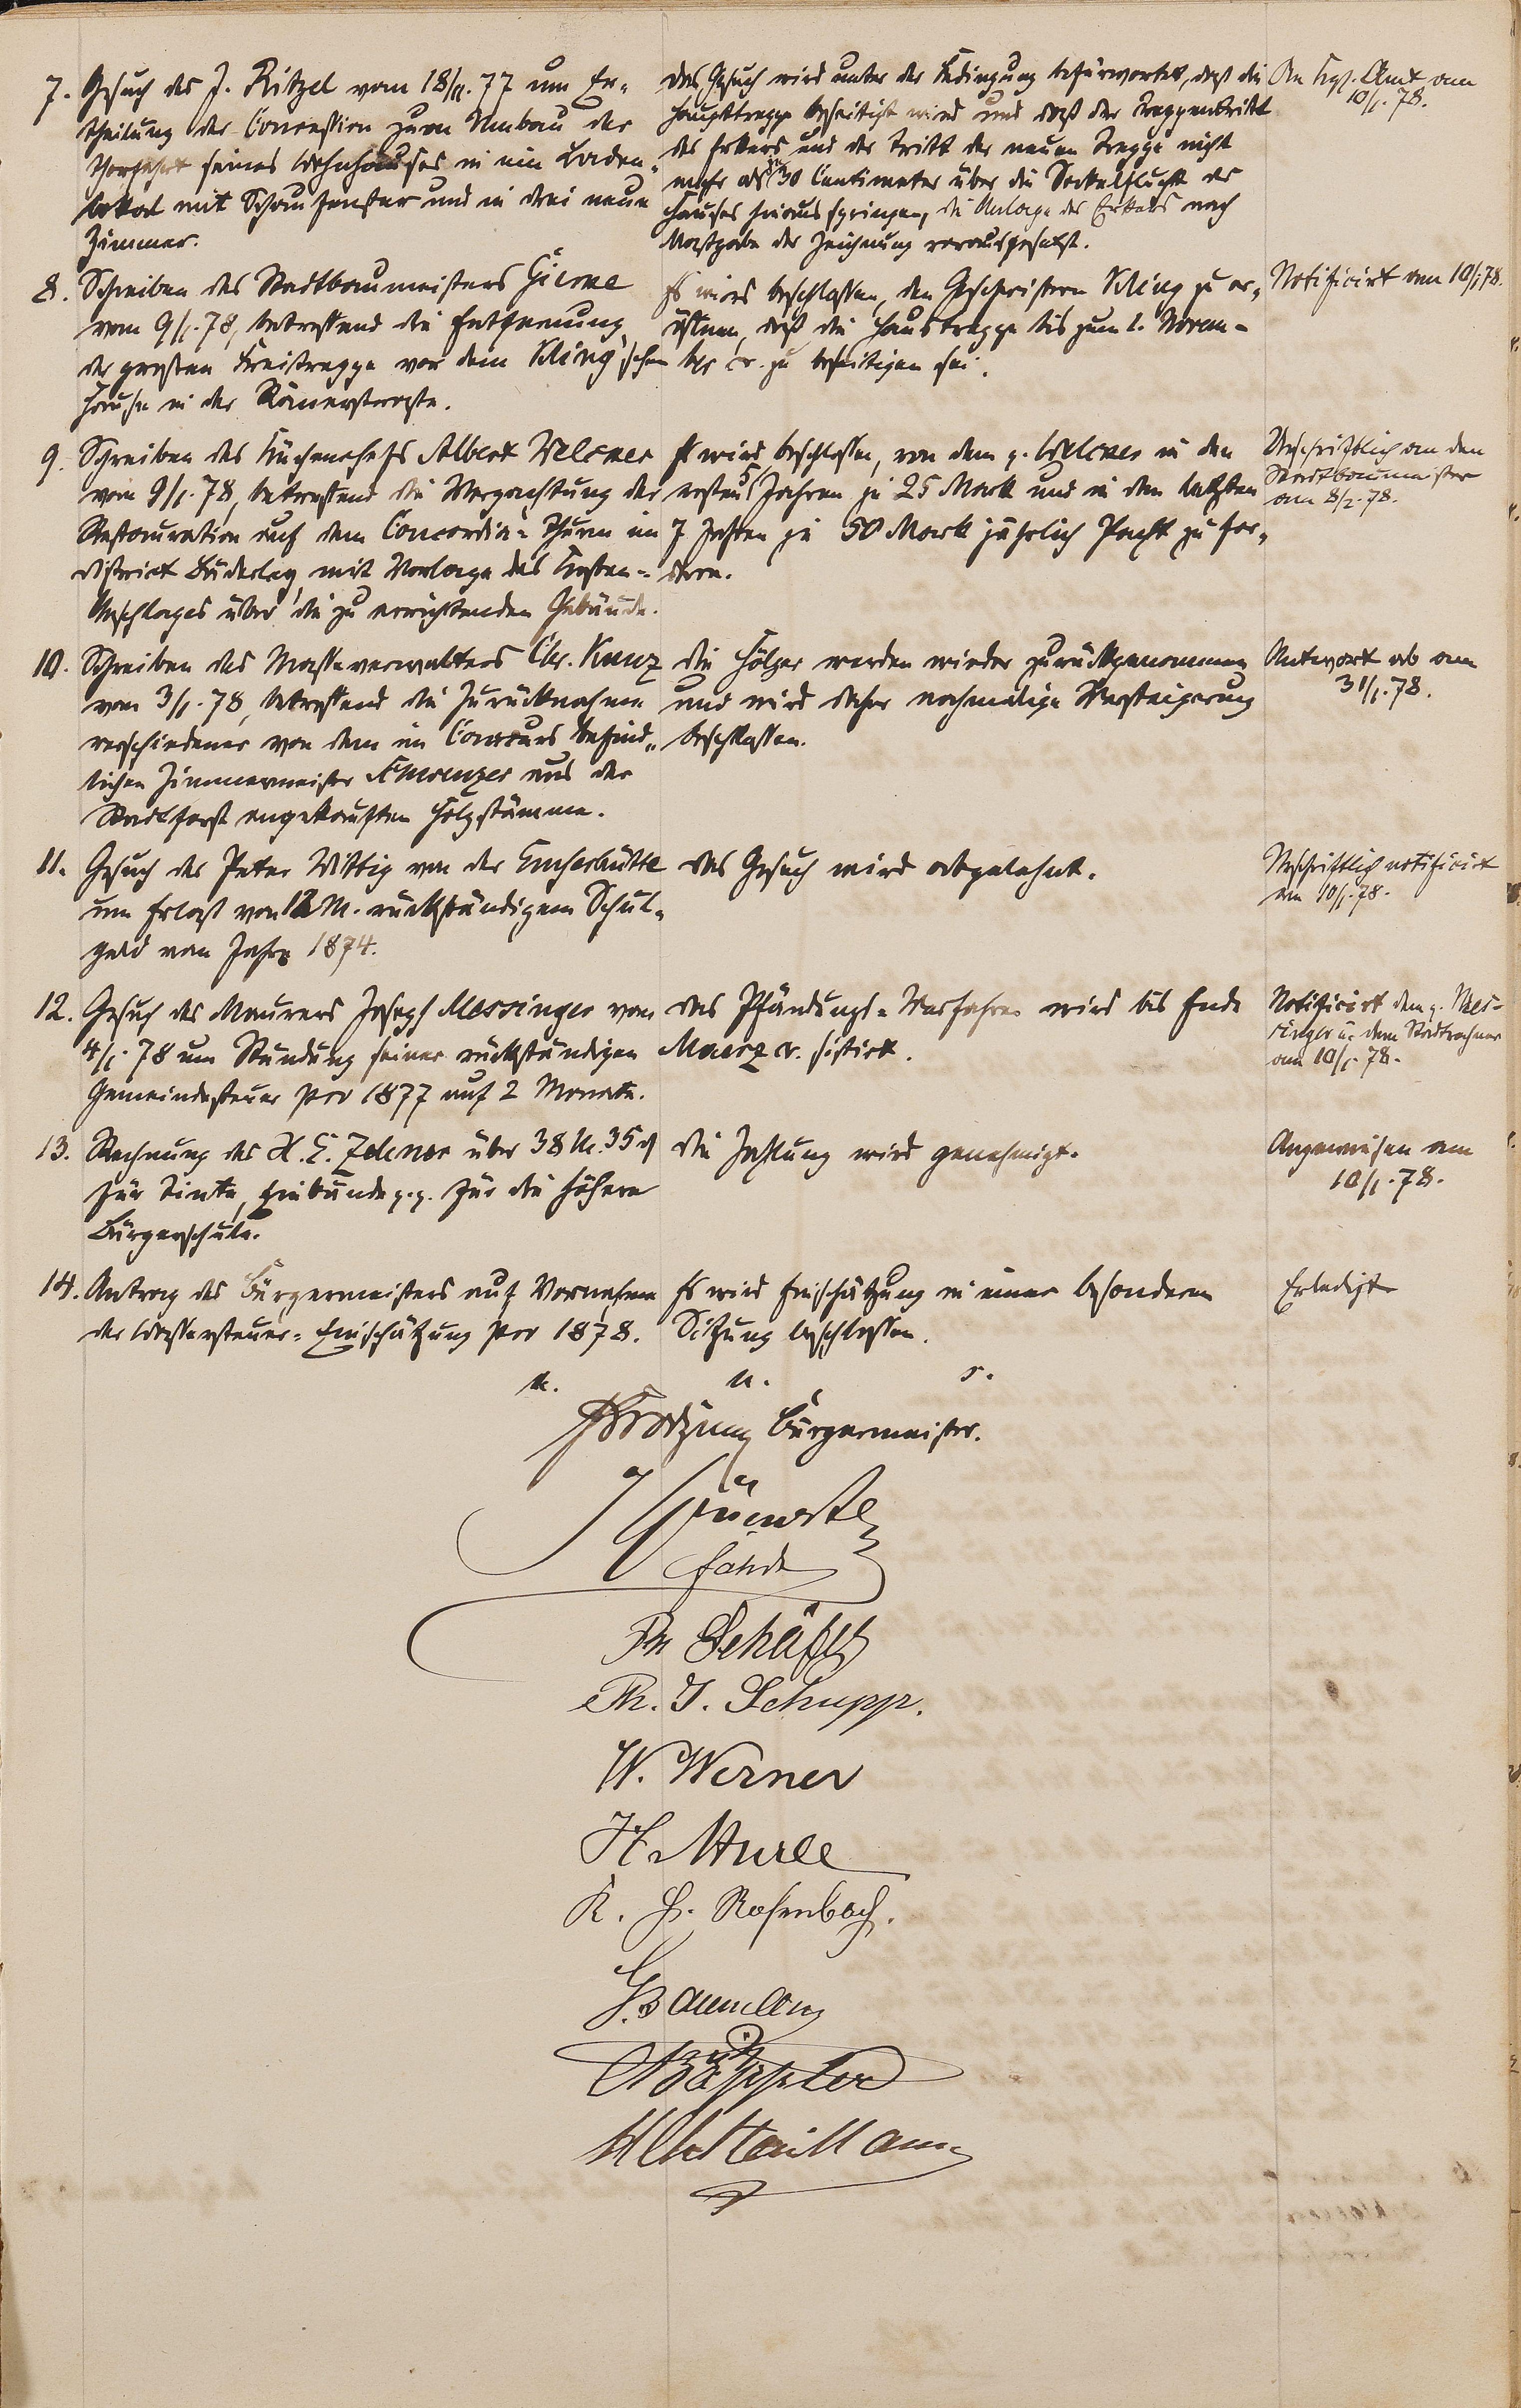 7. Gesuch des J. Ritzel vom 18/11. 77 um Er-
theilung der Concession zum Umbau der
Thorfahrt seines Wohnhauses in ein Laden-
lokal mit Schaufenster und in drei neue
Zimmer.
Das Gesuch wird unter der Bedingung befürwortet, daß die
Haupttreppe beseitigt wird und daß der Treppentritt
des Erkers und der Tritt der neuen Treppe nicht
mehr als 30 Centimeter über die Sockelflucht des
Hauses hinaus springen, die Anlage des Erkers nach
Maßgabe der Zeichnung vorausgesetzt.
An Kgl. Amt am
10/1. 78.
8. Schreiben des Stadtbaumeisters
vom 9/1. 78, betreffend die Entfernung
der großen Freitreppe vor dem Kling'schen
Hause in der Römerstraße.
Es wird beschlossen, den Geschwistern Kling zu er-
öffnen, daß die Haustreppe bis zum 1. Novem-
ber cr. zu beseitigen sei.
Notificirt am 10/1 78.
9. Schreiben des Küchenchefs Albert Welcker
vom 9/1. 78, betreffend die Verpachtung der
Restauration auf dem Concordia-Thurm im
District Bäderley, mit Vorlage des Kosten-
Anschlages über die zu errichtenden Gebäude.
Es wird beschlossen, von dem p. Welcker in den
ersten 5 Jahren je 25 Mark und in den letzten
7 Jahren je 50 Mark jährlich Pacht zu for-
dern.
Urschriftlich an den
Stadtbaumeister
am 8/2. 78.
10. Schreiben des Masseverwalters Chr. Kunz
vom 3/1. 78, betreffend die Zurücknahme
verschiedener von dem im Concurs befind-
lichen Zimmermeister aus der
Stadtforst angekauften Holzstämme.
Die Hölzer werden wieder zurückgenommen
und wird daher nochmalige Versteigerung
beschlossen.
Antwort ab am
31/1. 78.
11. Gesuch des Peter Wittig von der Emserhütte
um Erlaß von 12 M. rückständigem Schul-
geld vom Jahre 1874.
Das Gesuch wird abgelehnt.
Urschriftlich notificirt
am 10/1. 78.
12. Gesuch des Maurers Joseph Messinger vom
4/1. 78 um Stundung seiner rückständigen
Gemeindesteuer pro 1877 auf 2 Monate.
Das Pfändungs-Verfahren wird bis Ende
Maerz cr. sistirt.
Notificirt dem p. Mes-
singer u. dem Stadtrechner
am 10/1. 78.
13. Rechnung des H. E. über 38 M. 35 ₰
für Tinte, Einbände p.p. für die höhere
Bürgerschule.
Die Zahlung wird genehmigt.
Angewiesen am
10/1. 78.
14. Antrag des Bürgermeisters auf Vornahme
der Classensteuer-Einschätzung pro 1878.
Es wird Einschätzung in einer besonderen
Sitzung beschlossen.
Erledigt
v. u. s.
Bürgermeister.
Ph Schäfer
Ph. J. Schupp.
W. Werner
H. Murle
K. H. Rosenbach.